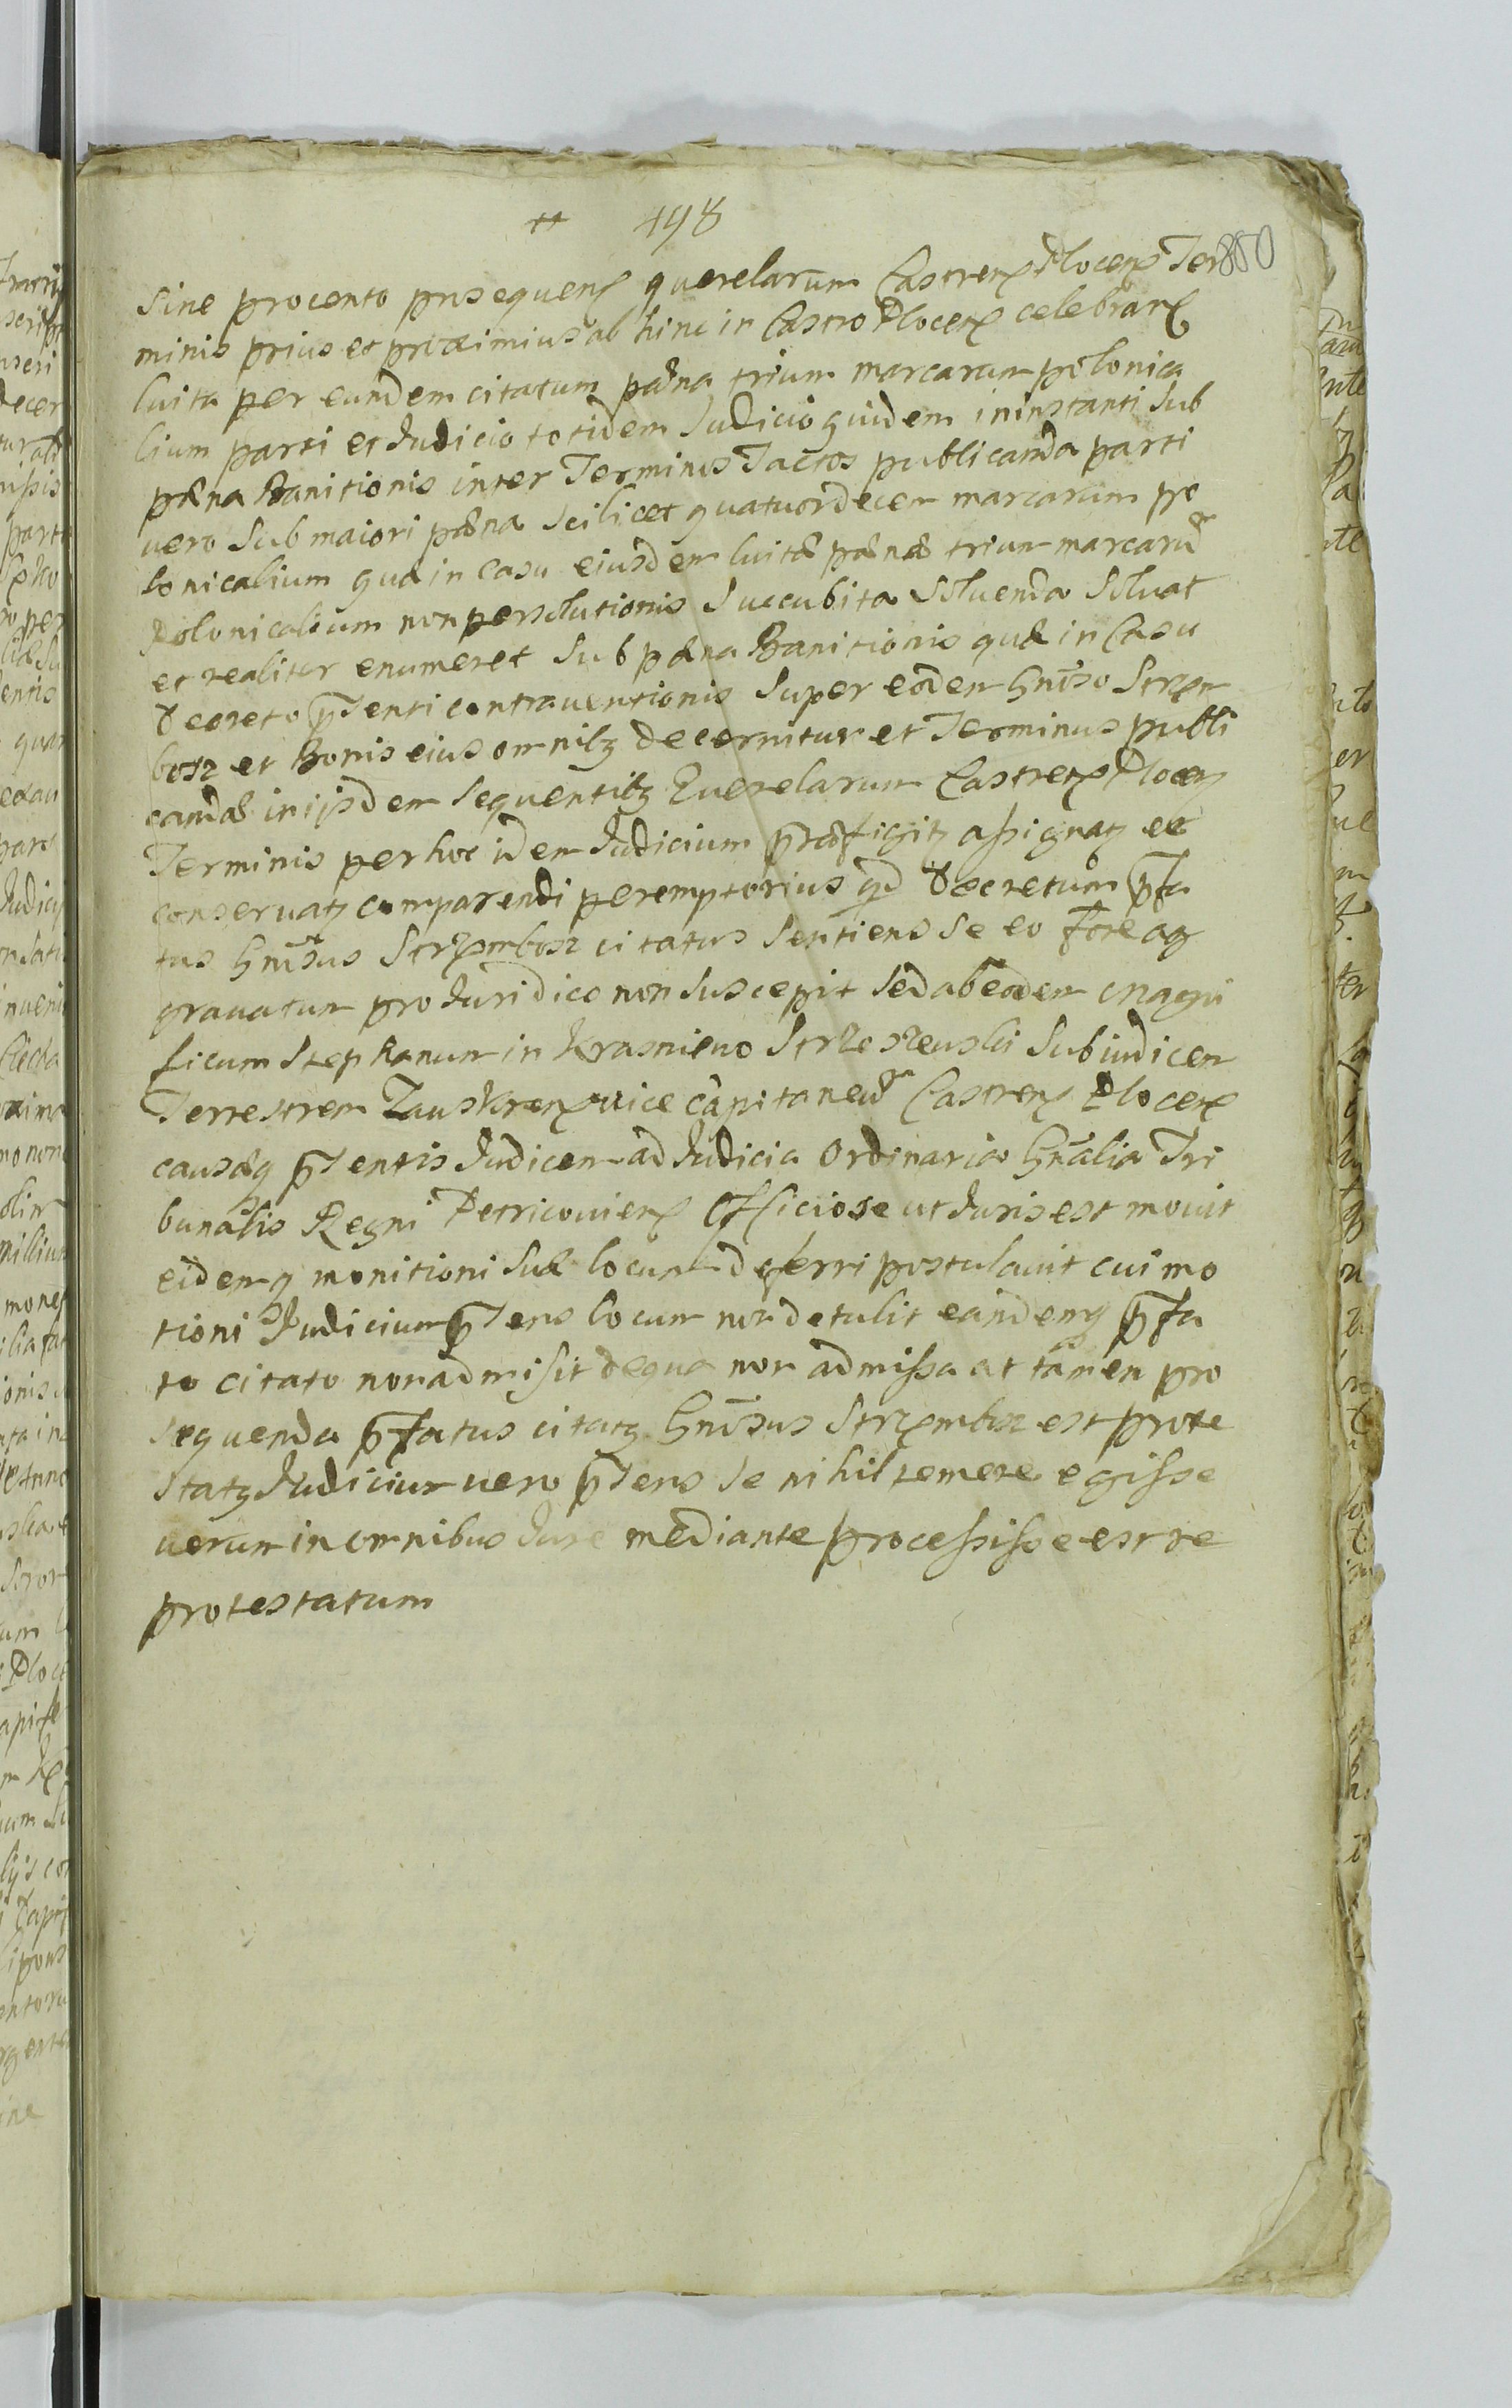 498
850
sine procento prosequens querelarum Castrens Plocens Ter
minis prius et proximius ab hinc in Castro Plocens celebrans
luita per eundem citatum pœna trium marcarum polonica
lium parti et Judicio totidem Judicio quidem in instanti sub
pœna Banitionis inter Terminos Tactos publicanda parti
uero sub maiori pœna scilicet quatuordecem marcarum po
lonicalium quæ in casu eiusdem luitæ pœnæ trium marcarū
Polonicalium non persolutionis succubita soluenda soluat
et realiter enumeret sub pœna Banitionis quæ in Casu
Decreto p̄senti contrauentionis super eodem Gn̄oso Strzem
bosz et Bonis eius omnibz decernitur et Terminus publi
candæ in ijsdem sequentibz Querelarum Castrens Plocens
Terminis per hoc idem Judicium præfigitz assignatz et
conseruatz comparendi peremptorius qd Decretum p̄fa
tus Gn̄osus Strzembosz citatus sentiens se eo fore ag
grauatum pro Juridico non suscepit sed ab eodem magni
ficum Stephanum in Krasniewo Strzeszewski subiudicem
Terrestrem Zauskrens uice capitaneū Castrens Plocens
causæq p̄sentis Judicem ad Judicia Ordinaria Gn̄alia Tri
bunalis Regni Petricouiens Officiose ut Juris est mouit
eidemq monitioni suæ locum deferri postulauit cui mo
tioni Judicium p̄sens locum non detulit eandemq p̄fa
to citato non admisit de qua non admissa at tamen pro
sequenda p̄fatus citatz Gn̄osus Strzembosz est prote
statz Judicium uero p̄sens se nihil temere egisse
uerum in omnibus Jure mediante processisse est re
protestatum